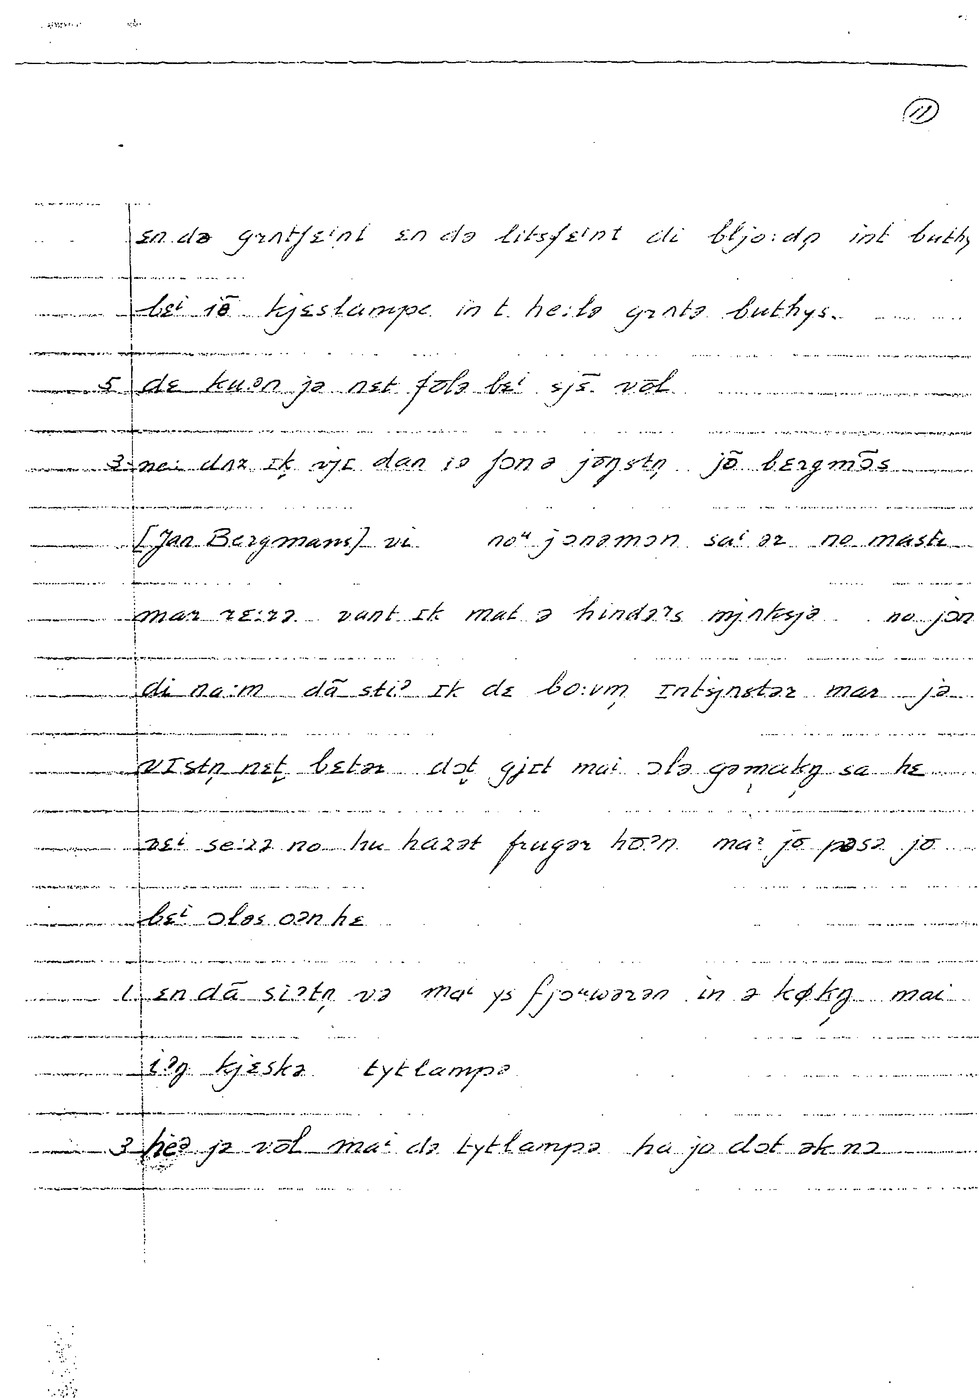 11
ɛn də grɪntfɛⁱnt ɛn də litsfɛⁱnt di bljo:dn̩ int buthy
bɛⁱ iə̄ kjɛslampə in t he:lə grɪntə buthys.
5 dɛ kuən jə nɛt fōlə bɛⁱ ɛjɛ̄ vōl
3 dan iə jɔnə jōŋstn̩ jō bɛrgmɔ̄s
[Jan Bergmans] vi noᵘ jɔnəmən saⁱ ər no mastɛ
mar rɛ:rə vant ɪk mat ə hindərs mjɪtksjə no jɔn
di na:m dā stiə ɪk dɛ bo:vm̩ ɪntsjnstər mar jə
vɪstn̩ nɛt bɛtər dɔt gjɪt mai ɔlə gəmakŋ̩ sa hɛ
vɛⁱ se:rə no hu harət frugər hōən maə jō pəsə jo
bɛⁱ ɔləs oən hɛ
1 ɛn dā siətn̩ və maⁱ ys fjoᵘwərən in ə køkŋ̩ mai
iəŋ kjɛskə tytlampə
3 heə jə vōl maⁱ də tytlampə ha jo dɔt ək nə